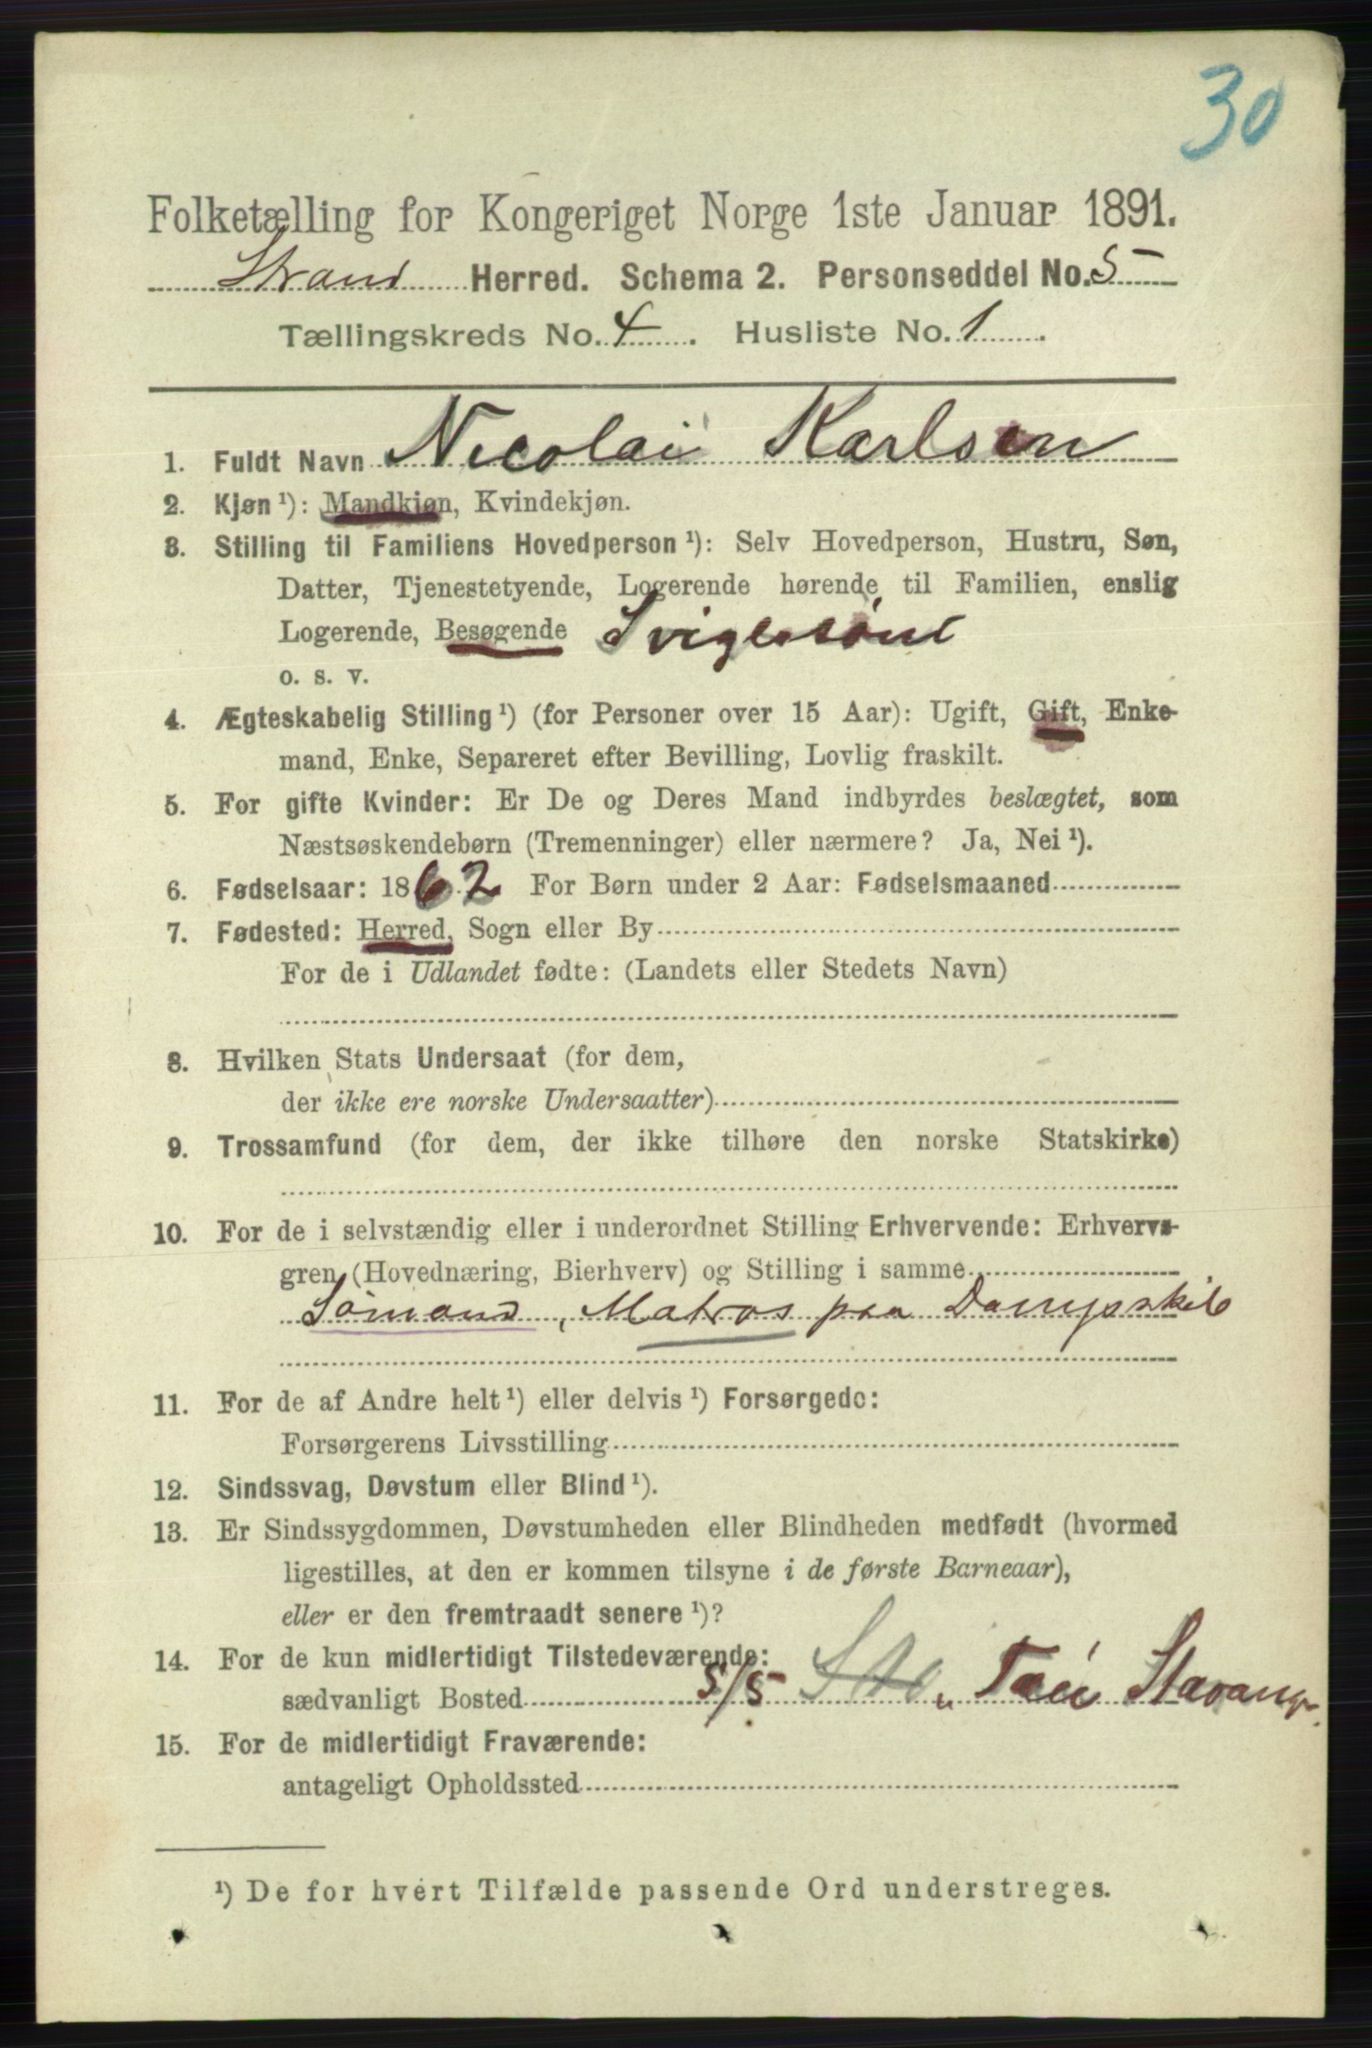 30
Folketælling for Kongeriget Norge 1ste Januar 1891.
Strand Herred. Schema 2. Personseddel No. 5
Tællingskreds No. 4. Husliste No. 1.
1. Fuldt Navn Nicolai Karlsen
2. Kjøn ¹): Mandkjøn, Kvindekjøn.
3. Stilling til Familiens Hovedperson ¹): Selv Hovedperson, Hustru, Søn,
Datter, Tjenestetyende, Logerende hørende til Familien, enslig
Logerende, Besøgende Svigersöns
o. s. v.
4. Ægteskabelig Stilling ¹) (for Personer over 15 Aar): Ugift, Gift, Enke-
mand, Enke, Separeret efter Bevilling, Lovlig fraskilt.
5. For gifte Kvinder: Er De og Deres Mand indbyrdes beslægtet, som
Næstsøskendebørn (Tremenninger) eller nærmere? Ja, Nei ¹).
6. Fødselsaar: 1862 For Børn under 2 Aar: Fødselsmaaned
7. Fødested: Herred, Sogn eller By
For de i Udlandet fødte: (Landets eller Stedets Navn)
8. Hvilken Stats Undersaat (for dem,
der ikke ere norske Undersaatter)
9. Trossamfund (for dem, der ikke tilhøre den norske Statskirke)
10. For de i selvstændig eller i underordnet Stilling Erhvervende: Erhvervs-
gren (Hovednæring, Bierhverv) og Stilling i samme
Sömand, Matros paa Dampskib
11. For de af Andre helt ¹) eller delvis ¹) Forsørgede:
Forsørgerens Livsstilling
12. Sindssvag, Døvstum eller Blind ¹).
13. Er Sindssygdommen, Døvstumheden eller Blindheden medfødt (hvormed
ligestilles, at den er kommen tilsyne i de første Barneaar),
eller er den fremtraadt senere ¹)?
14. For de kun midlertidigt Tilstedeværende:
sædvanligt Bosted 5/5 Tau Stavang.
15. For de midlertidigt Fraværende:
antageligt Opholdssted
¹) De for hvert Tilfælde passende Ord understreges.